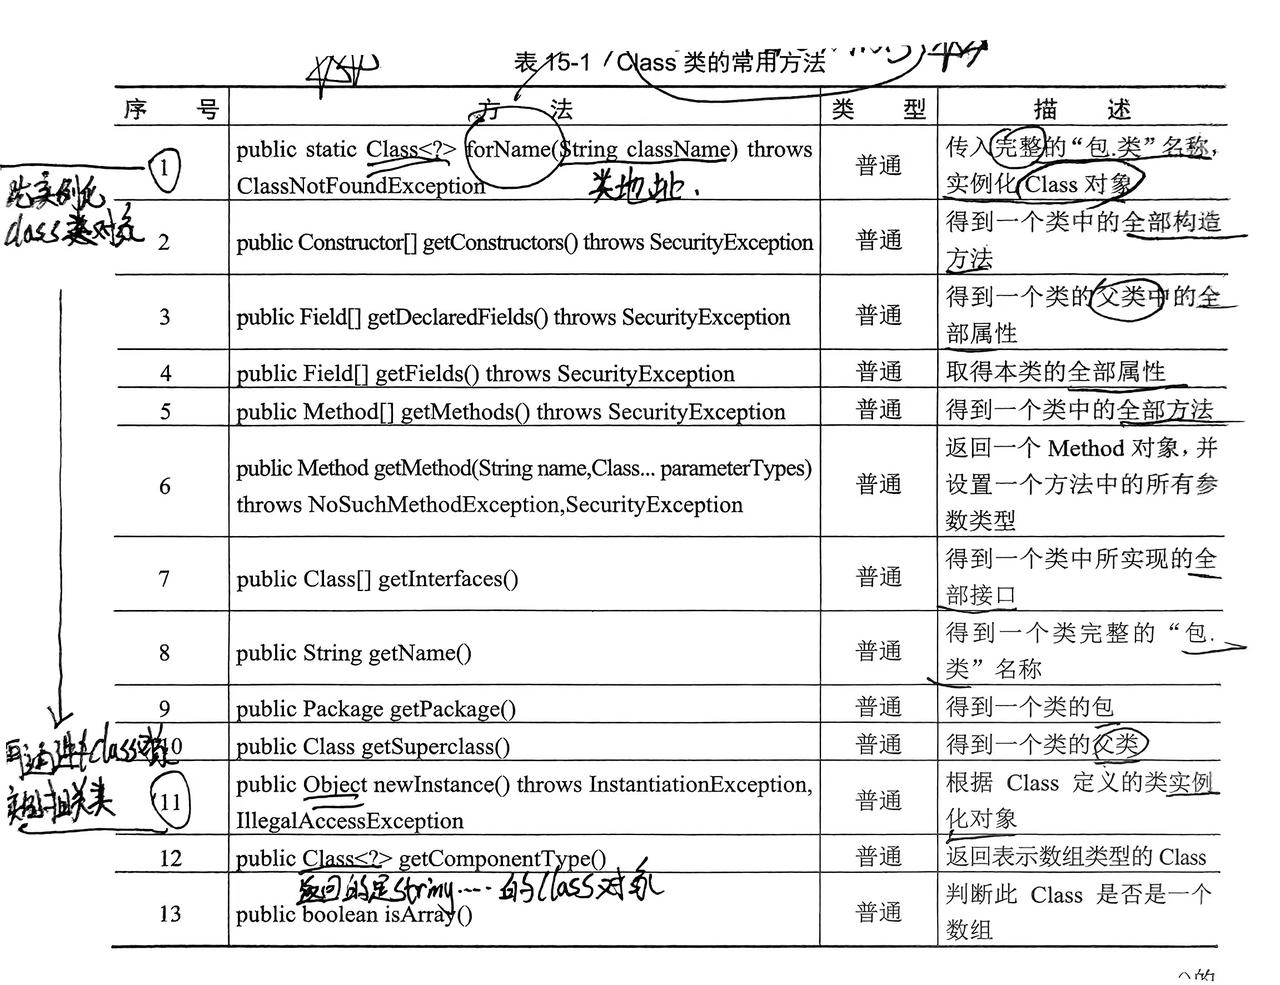 表 15-1 Class 类的常用方法
序 号 方 法 类 型 描 述
1 public static Class<?> forName(String className) throws 普通 传入完整的“包.类”名称，
ClassNotFoundException 实例化 Class 对象
类地址.
先实例化
class类对象
2 public Constructor[] getConstructors() throws SecurityException 普通 得到一个类中的全部构造
方法
3 public Field[] getDeclaredFields() throws SecurityException 普通 得到一个类的父类中的全
部属性
4 public Field[] getFields() throws SecurityException 普通 取得本类的全部属性
5 public Method[] getMethods() throws SecurityException 普通 得到一个类中的全部方法
6 public Method getMethod(String name,Class... parameterTypes) 普通 返回一个 Method 对象，并
throws NoSuchMethodException,SecurityException 设置一个方法中的所有参
数类型
7 public Class[] getInterfaces() 普通 得到一个类中所实现的全
部接口
8 public String getName() 普通 得到一个类完整的“包.
类”名称
9 public Package getPackage() 普通 得到一个类的包
10 public Class getSuperclass() 普通 得到一个类的父类
再通过class对象
相关类
11 public Object newInstance() throws InstantiationException, 普通 根据 Class 定义的类实例
IllegalAccessException 化对象
12 public Class<?> getComponentType() 普通 返回表示数组类型的 Class
返回的是String……的Class对象
13 public boolean isArray() 普通 判断此 Class 是否是一个
数组